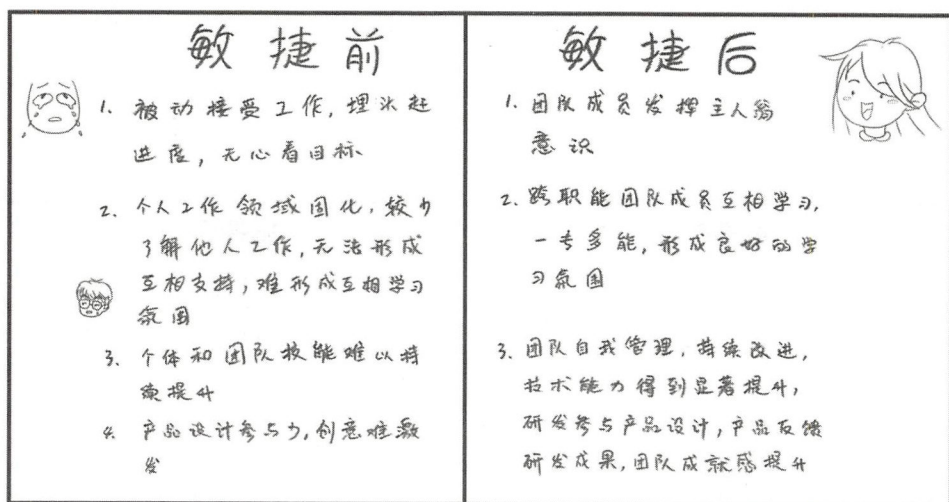 敏捷前
1. 被动接受工作，埋头赶
进度，无心看目标
2. 个人工作领域固化，较少
了解他人工作，无法形成
互相支持，难形成互相学习
氛围
3. 个体和团队技能难以持
续提升
4. 产品设计参与少，创意难激
发
敏捷后
1. 团队成员发挥主人翁
意识
2. 跨职能团队成员互相学习，
一专多能，形成良好的学
习氛围
3. 团队自我管理，持续改进，
技术能力得到显著提升，
研发参与产品设计，产品反馈
研发成果，团队成就感提升